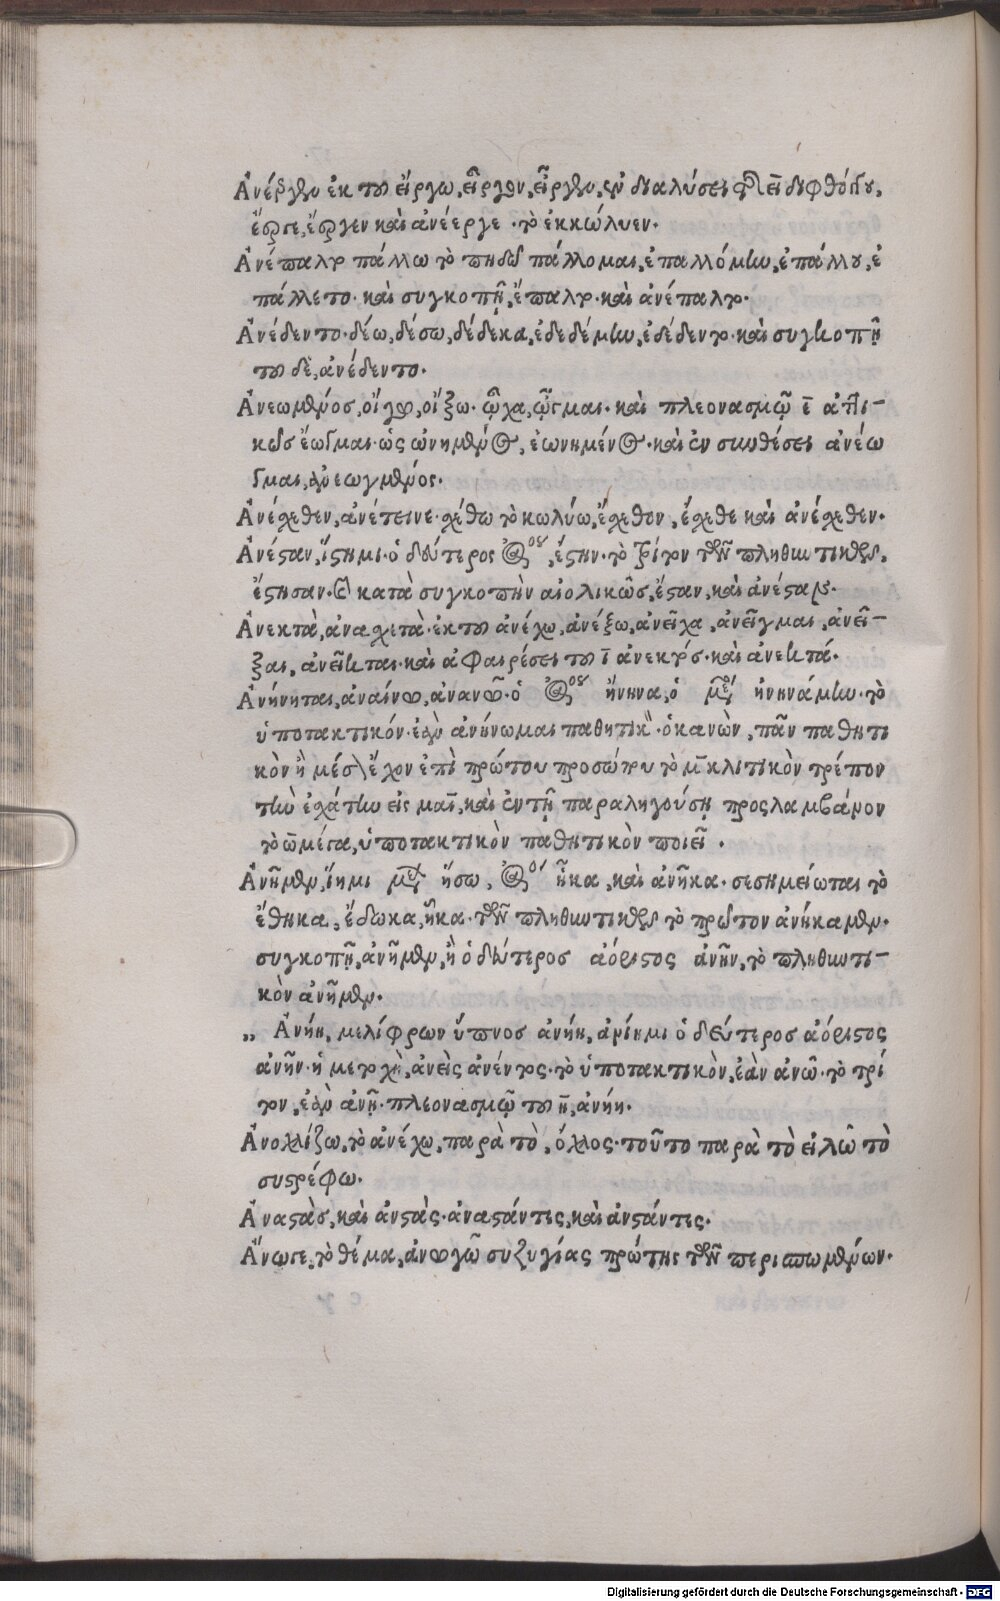 Ἀνέεργεν ἐκ τοῦ εἴργω, εἶργον, εἶργεν, ἐν διαλύσει τῆς ει διφθόγγου,
ἔεργε, ἔεργεν καὶ ἀνέεργε. τὸ ἐκκώλυεν.
Ἀνέπαλτο πάλλω τὸ πηδῶ πάλλομαι, ἐπαλλόμην, ἐπάλλου, ἐ
πάλλετο. καὶ συγκοπῇ, ἔπαλτο. καὶ ἀνέπαλτο.
Ἀνέδεντο. δέω, δέσω, δέδεκα, ἐδεδέμην, ἐδέδεντο. καὶ συγκοπῇ
τοῦ δὲ, ἀνέδεντο.
Ἀνεωγμένος, οἴγω, οἴξω. ᾦχα, ᾦγμαι. καὶ πλεονασμῷ ε ἀττι-
κῶς ἔωγμαι. ὡς ὠνημένος, ἐωνημένος. καὶ ἐν συνθέσει ἀνέω
γμαι, ἀνεωγμένος.
Ἀνέχεθεν, ἀνέτεινε. χέθω τὸ κωλύω, ἔχεθον, ἔχεθε καὶ ἀνέχεθεν.
Ἀνέσταν, ἵστημι. ὁ δεύτερος ἀόριστος, ἔστην. τὸ τρίτον τῶν πληθυντικῶν,
ἔστησαν. καὶ κατὰ συγκοπὴν αἰολικῶς, ἔσταν, καὶ ἀνέσταν.
Ἀνεκτὰ, ἀνασχετὰ. ἐκ τοῦ ἀνέχω, ἀνέξω, ἀνεῖχα, ἀνεῖγμαι, ἀνεῖ-
ξαι, ἀνεῖκται. καὶ ἀφαιρέσει τοῦ ι ἀνεκτός. καὶ ἀνεκτά.
Ἀνήνηται, ἀναίνω, ἀνανῶ. ὁ ἀόριστος ἤνηνα, ὁ μέσος ἠνηνάμην. τὸ
ὑποτακτικόν. ἐὰν ἀνήνωμαι παθητικόν. ὁ κανὼν, πᾶν παθητι
κὸν ἢ μέσον ἔχον ἐπὶ πρώτου προσώπου τὸ μ κλιτικὸν τρέπον
τὴν ἐσχάτην εἰς μαι, καὶ ἐν τῇ παραληγούσῃ προσλαμβάνον
τὸ ω μέγα, ὑποτακτικὸν παθητικὸν ποιεῖ.
Ἀνῆμεν, ἵημι μέλλων ἥσω, ἀόριστος ἧκα, καὶ ἀνῆκα. σεσημείωται τὸ
ἔθηκα, ἔδωκα, ἧκα. τῶν πληθυντικῶν τὸ πρῶτον ἀνήκαμεν.
συγκοπῇ, ἀνῆμεν, ἢ ὁ δεύτερος ἀόριστος ἀνῆν, τὸ πληθυντι-
κὸν ἀνῆμεν.
„ Ἀνήῃ, μελίφρων ὕπνος ἀνήῃ, ἀνίημι ὁ δεύτερος ἀόριστος
ἀνῆν. ἡ μετοχὴ, ἀνεὶς ἀνέντος. τὸ ὑποτακτικὸν, ἐὰν ἀνῶ. τὸ τρί
τον, ἐὰν ἀνῇ. πλεονασμῷ τοῦ η, ἀνήῃ.
Ἀνολλίζω, τὸ ἀνέχω, παρὰ τὸ, ὄλλος. τοῦτο παρὰ τὸ εἰλῶ τὸ
συστρέφω.
Ἀναστὰς, καὶ ἀνστὰς. ἀναστάντες, καὶ ἀνστάντες.
Ἄνωγε, τὸ θέμα, ἀνωγῶ συζυγίας πρώτης τῶν περισπωμένων.